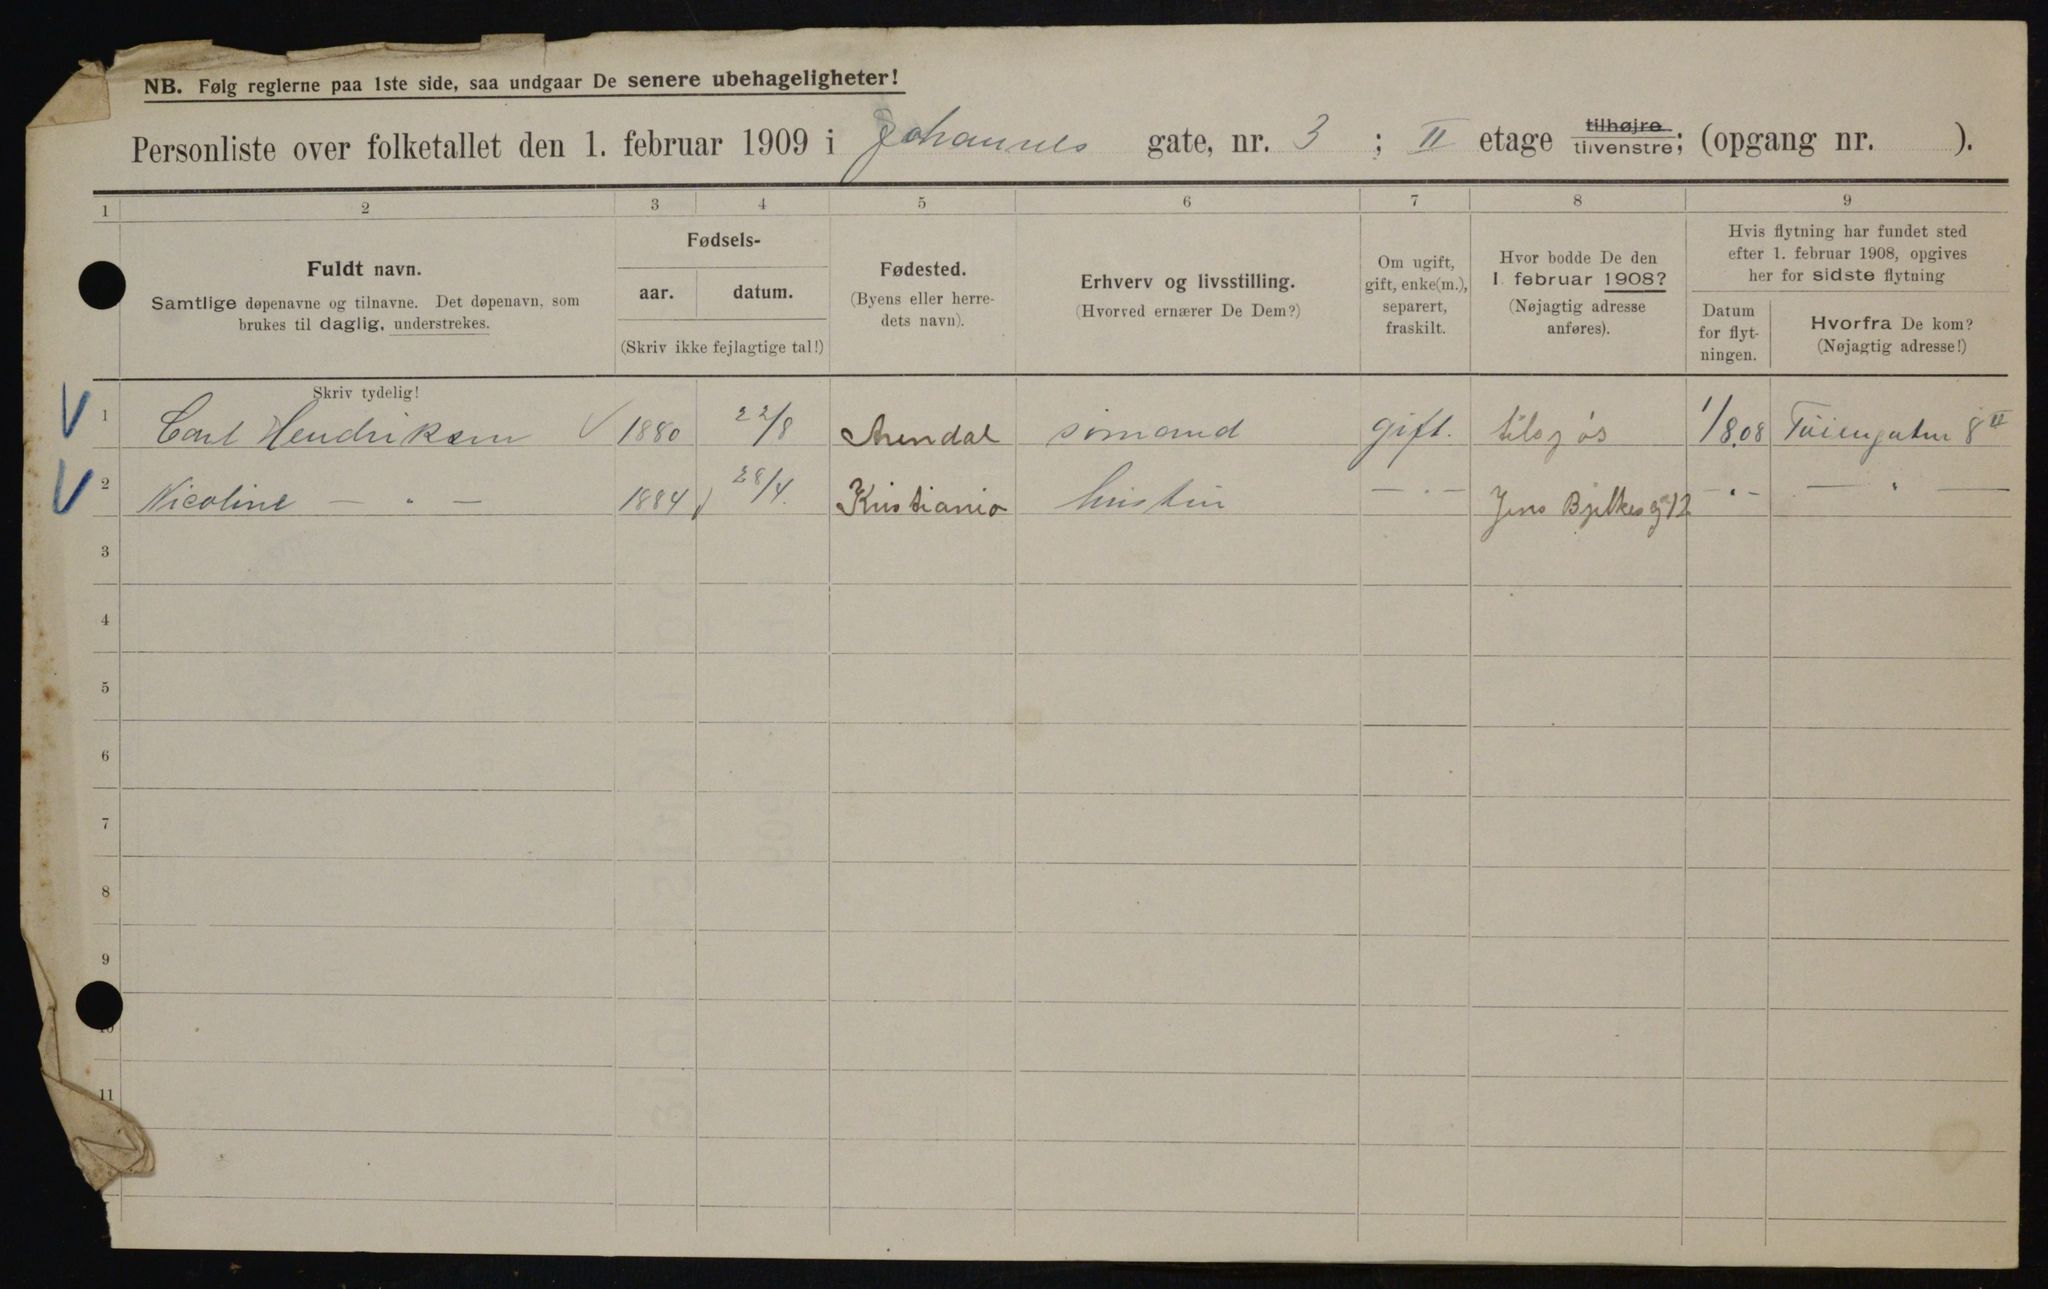 NB. Følg reglerne paa 1ste side, saa undgaar De senere ubehageligheter!
Personliste over folketallet den 1. februar 1909 i Johannes gate, nr. 3 ; II etage tilhøjre tilvenstre; (opgang nr. ).
1 2 3 4 5 6 7 8 9
Fuldt navn.
Samtlige døpenavne og tilnavne. Det døpenavn, som
brukes til daglig, understrekes.
Fødsels-
aar. datum.
(Skriv ikke fejlagtige tal!)
Fødested.
(Byens eller herre-
dets navn).
Erhverv og livsstilling.
(Hvorved ernærer De Dem?)
Om ugift,
gift, enke(m.),
separert,
fraskilt.
Hvor bodde De den
1. februar 1908?
(Nøjagtig adresse
anføres).
Hvis flytning har fundet sted
efter 1. februar 1908, opgives
her for sidste flytning
Datum
for flyt-
ningen.
Hvorfra De kom?
(Nøjagtig adresse!)
Skriv tydelig!
1 Carl Hendriksen 1880 22/8 Arendal sømand gift. tilsjøs 1/8.08 Tøiengaten 8 II
2 Nicoline — „ — 1884 28/4. Kristiania hustru — „ — Jens Bjelkesg 12 - „ - — „ —
3
4
5
6
7
8
9
10
11